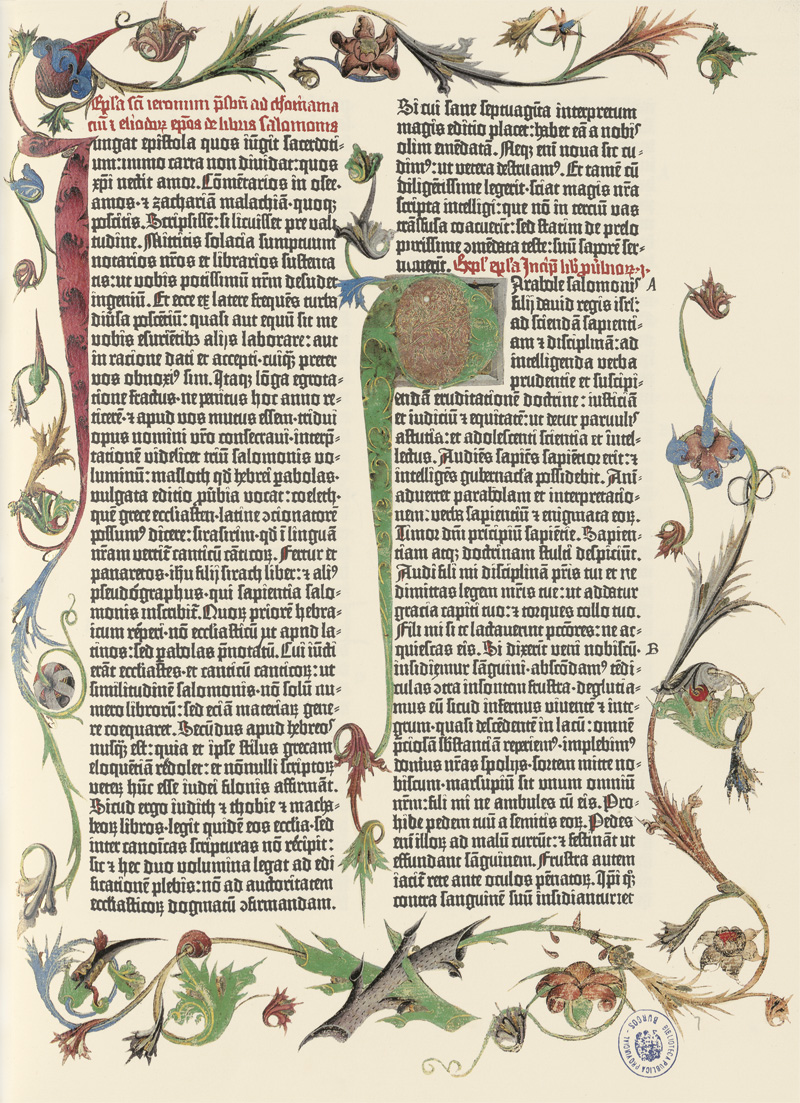 Epl'a scī ieronimi p̄sb̄ri ad chromacia
cium ⁊ eliodorū ep̄os de libris salomonis
Iungat epistola quos iūgit sacerdoti-
um: immo carta non diuidat: quos
xp̄i nectit amor. Cōmētarios in osee·
amos· ⁊ zachariā malachiā· quoq;
poscitis. Scripsissē: si licuisset pre vali-
tudine. Mittitis solacia sumptuum
notarios nr̄os et librarios sustenta-
tis: ut vobis potissimū nr̄m desudet
ingeniū. Et ecce ex latere frequēs turba
diūsa poscētiū: quasi aut equū sit me
vobis esurientib; alijs laborare: aut
in ratione dati et accepti· cuiq̄ȝ preter
vos obnoxi⁹ sim. Itaq; lōga egrota-
tione fractus· ne penitus hoc anno re-
ticerē· ⁊ apud vos mutus essem· tridui
opus nomini vr̄o consecraui· interp̄-
tationē videlicet triū salomonis vo-
luminū: masloth qd̄ hebrei p̄abolas·
vulgata editio ꝓūbia vocat: coeleth·
quē grece ecclīasten· latine ↄcionatorē
possum⁹ dicere: sirasirim· qd̄ ī linguā
nr̄am vertiē canticū cāticoꝝ. Fertur et
panaretos· ih̄u filij sirach liber: ⁊ ali⁹
pseudographus· qui sapientia salo-
monis inscribiē. Quoꝝ priorē hebra-
icum reperi· nō ecclīasticū ut apud la-
tinos: sed p̄abolas p̄notatū. Cui iūcti
erāt ecclīastes· et canticū canticoꝝ: ut
similitudinē salomonis· nō solū nu-
mero librorū: sed eciā materiaꝝ gene-
re coequaret. Secūdus apud hebreos
nusq̄ȝ est: quia et ipse stilus grecam
eloquētiā redolet: et nōnulli scriptoꝝ
veteꝝ hūc esse iudei filonis affirmāt.
Sicud ergo iudith ⁊ thobie ⁊ macha-
beoꝝ libros· legit quidē eos ecclīa· sed
inter canoīcas scripturas nō recipit:
sic ⁊ hec duo volumina legat ad edi-
ficationē plebis: nō ad auctoritatem
ecclīasticoꝝ dogmatū ↄfirmandam.
Si cui sane septuagīta interpretum
magis editio placet: habet eā a nobis
olim emēdatā. Neq; enī noua sic cu-
dim⁹: ut vetera destruam⁹. Et tamē cū
diligētissime legerit· sciat magis nr̄a
scripta intelligi: que nō in terciū vas
trāsfusa coacuerit: sed statim de prelo
purissime ↄmēdata teste: suū saporē ser-
uauerit. Expl' epl'a Incip̄ lib̄ ꝓūbioꝝ· j·
Parabole salomonis A
filij dauid regis isrl':
ad sciendā sapienti-
am ⁊ disciplinā: ad
intelligenda verba
prudentie et suscipi-
endā eruditationē doctrine: iusticiā
et iudiciū ⁊ equitatē: ut detur paruulis
astutia: et adolescenti scientia et intel-
lectus. Audiēs sapiēs sapiētior erit: ⁊
intelligēs gubernacl'a possidebit. Ani-
aduertet parabolam et interpretatio-
nem: verba sapientiū ⁊ enigmata eoꝝ.
Timor dn̄i pricipiū sapiētie. Sapien-
tiam atq; doctrinam stulti despiciūt.
Audi fili mi disciplinā pr̄is tui et ne
dimittas legem mr̄is tue: ut addatur
gracia capiti tuo: ⁊ torques collo tuo.
Fili mi si te lactauerint pctōres: ne ac-
quiescas eis. Si dixerīt veni nobiscū· B
insidiemur sāguini· abscōdam⁹ tēdi-
culas ↄtra insontem frustra· deglutia-
mus eū sicud infernus viuentē ⁊ inte-
grum· quasi descēdentē in lacū: omnē
p̄ciosā sb̄stanciā reperiem⁹· implebim⁹
domus nr̄as spolijs· sortem mitte no-
biscum· marsupiū sit vnum omniū
nr̄m: fili mi ne ambules cū eis. Pro-
hibe pedem tuū a semitis eoꝝ. Pedes
enī illoꝝ ad malū currūt: ⁊ festināt ut
effundant sāguinem. Frustra autem
iaciē rete ante oculos pēnatoꝝ. Ip̄i q̄ȝ
contra sanguinē suū insidiantur: et
BIBLIOTECA PUBLICA PROVINCIAL - BURGOS